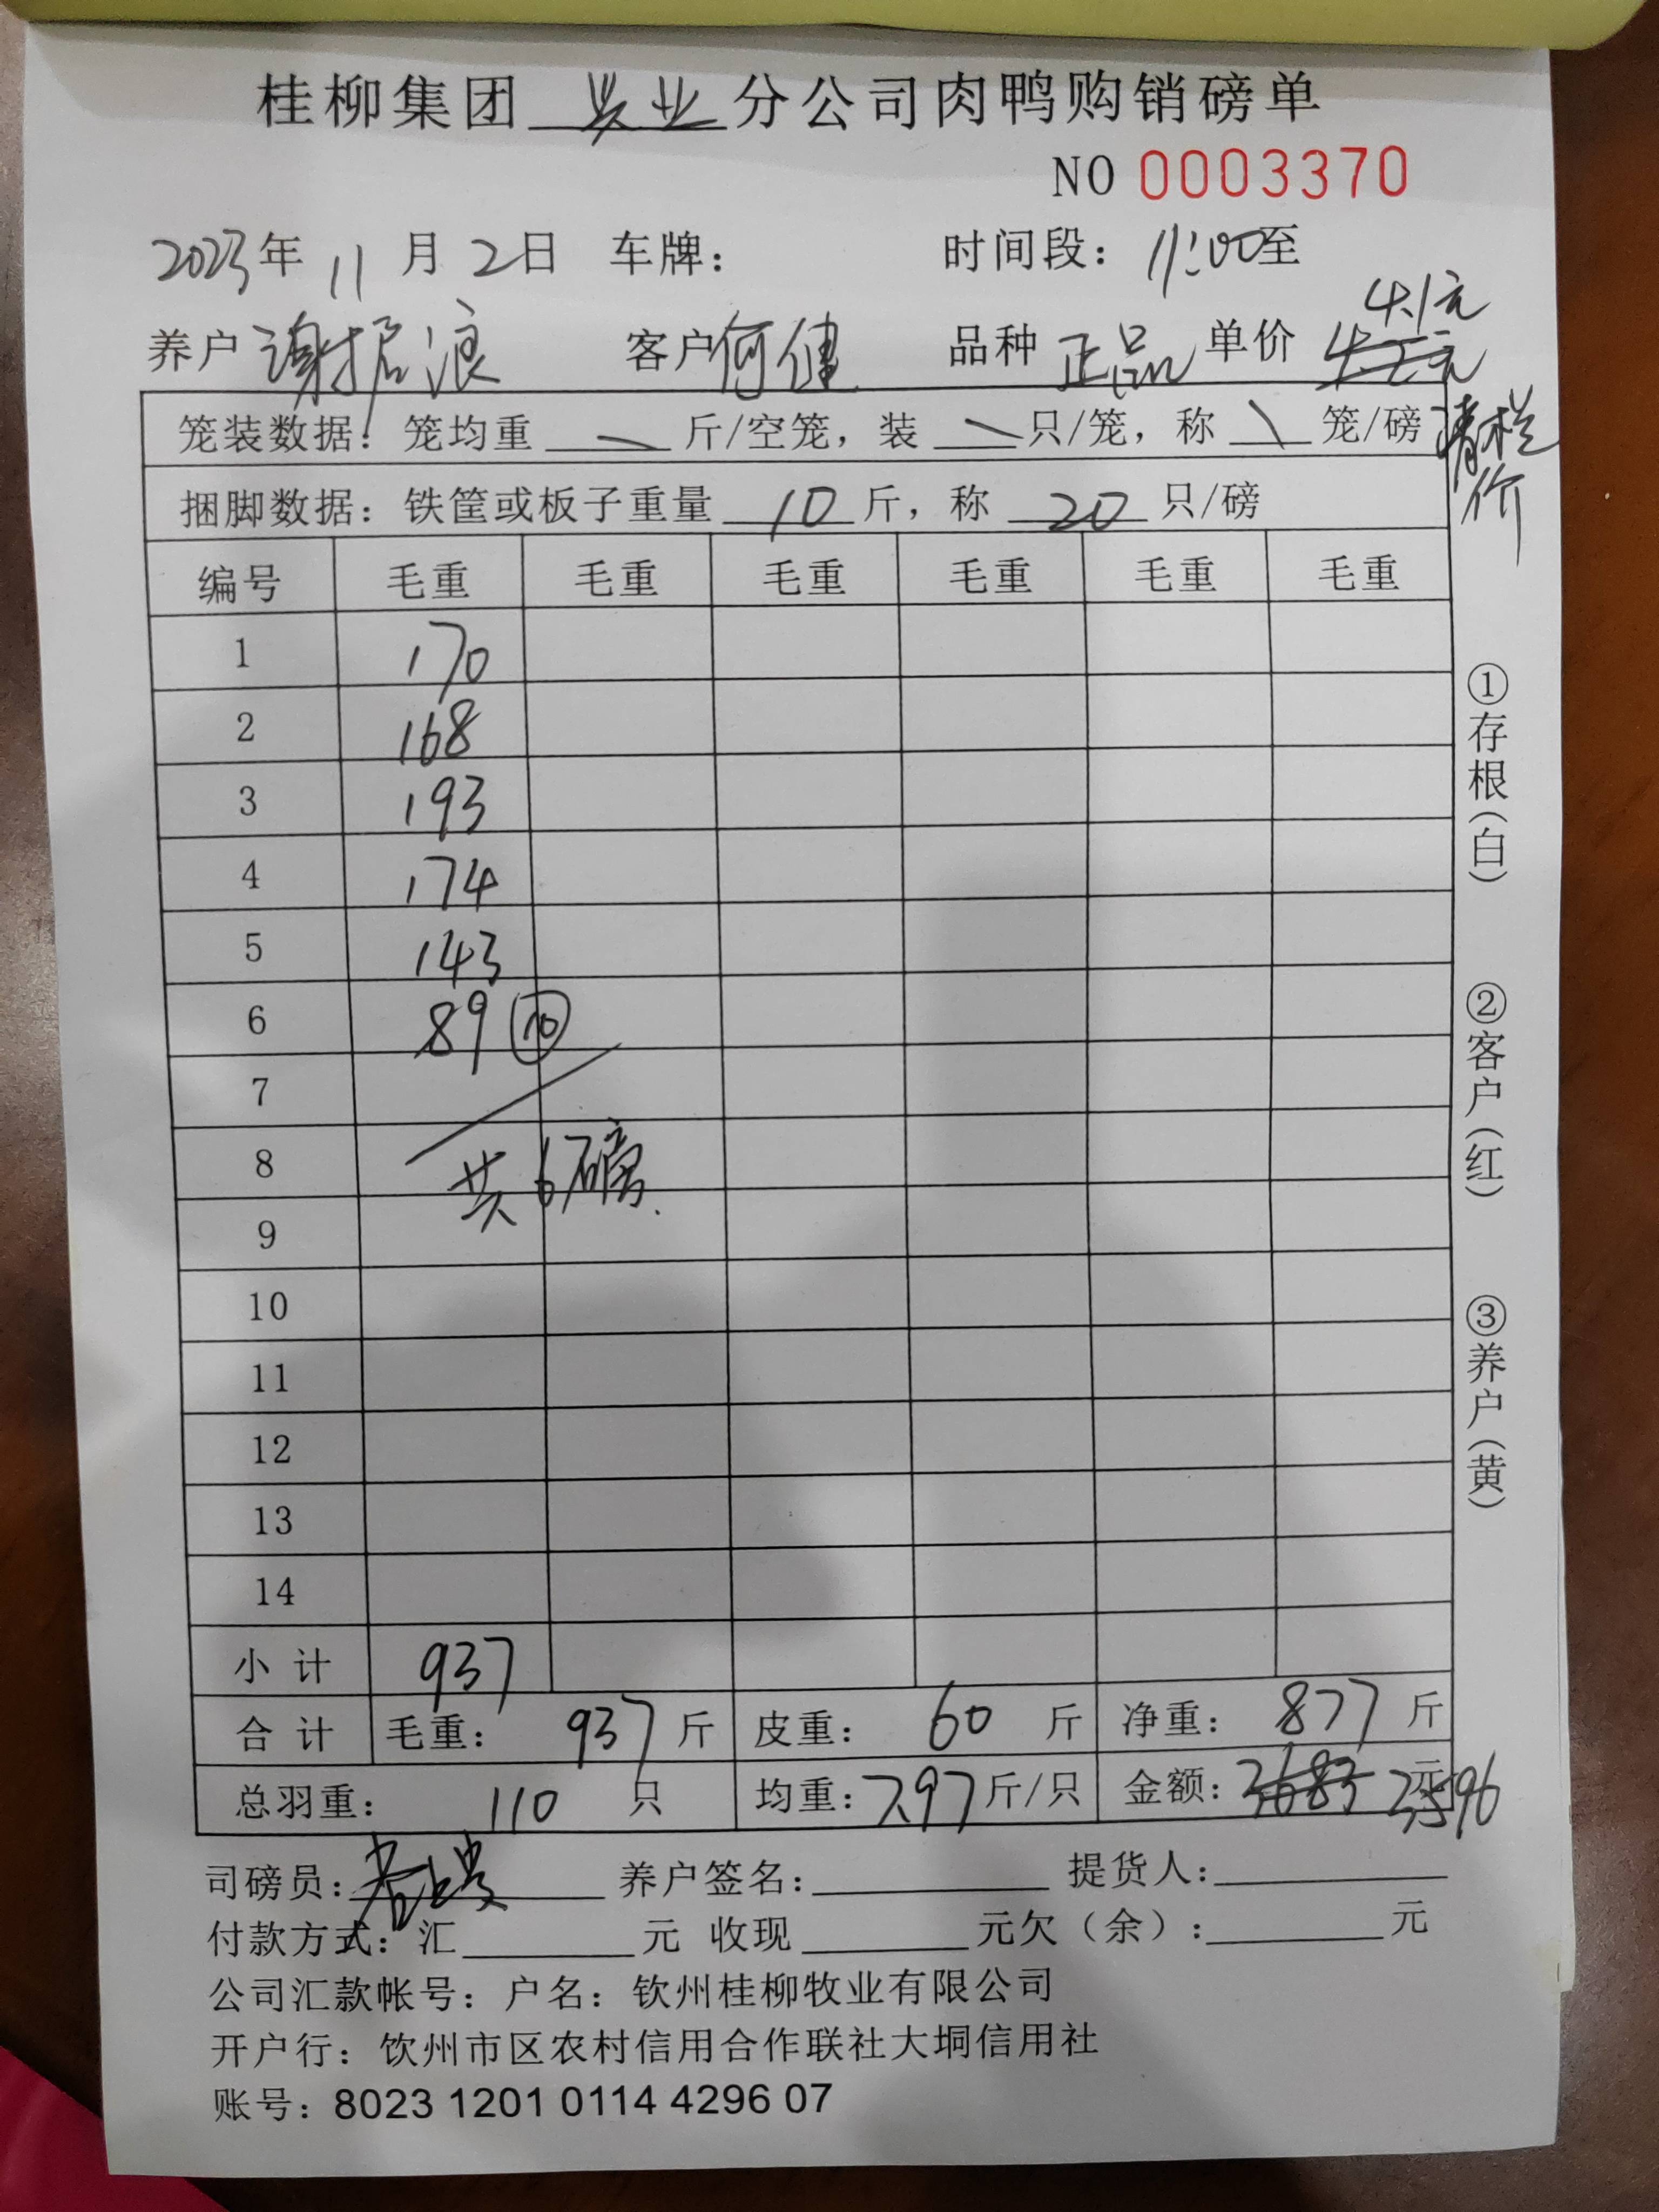 桂柳集团 兴业 分公司肉鸭购销磅单
NO 0003370
2023年 11 月 2日 车牌： 时间段：11:00至
4.1元
养户 谢振浪 客户 何健 品种 正品 单价
清栏价
笼装数据：笼均重 \ 斤/空笼，装 \ 只/笼，称 \ 笼/磅
捆脚数据：铁筐或板子重量 10 斤，称 20 只/磅
编号 毛重 毛重 毛重 毛重 毛重 毛重
1 170
2 168
3 193
4 174
5 143
6 89 ⑩
7
8 共6磅.
9
10
11
12
13
14
小计 937
合计 毛重： 937 斤 皮重： 60 斤 净重： 877 斤
总羽重： 110 只 均重：7.97斤/只 金额：3683 元 3596
司磅员： 养户签名： 提货人：
付款方式：汇 元 收现 元欠（余）： 元
公司汇款帐号：户名：钦州桂柳牧业有限公司
开户行：钦州市区农村信用合作联社大垌信用社
账号：8023 1201 0114 4296 07
①存根（白）
②客户（红）
③养户（黄）